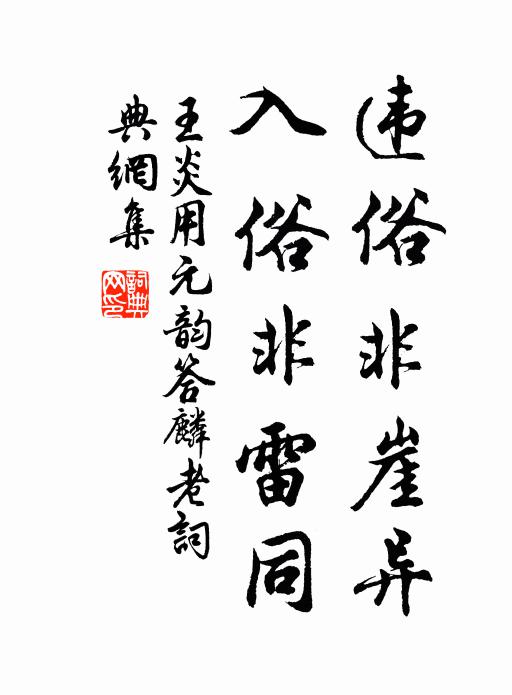 违俗非崖异
入俗非雷同
王炎用元韵答麟老詞
典網集
詞典网印